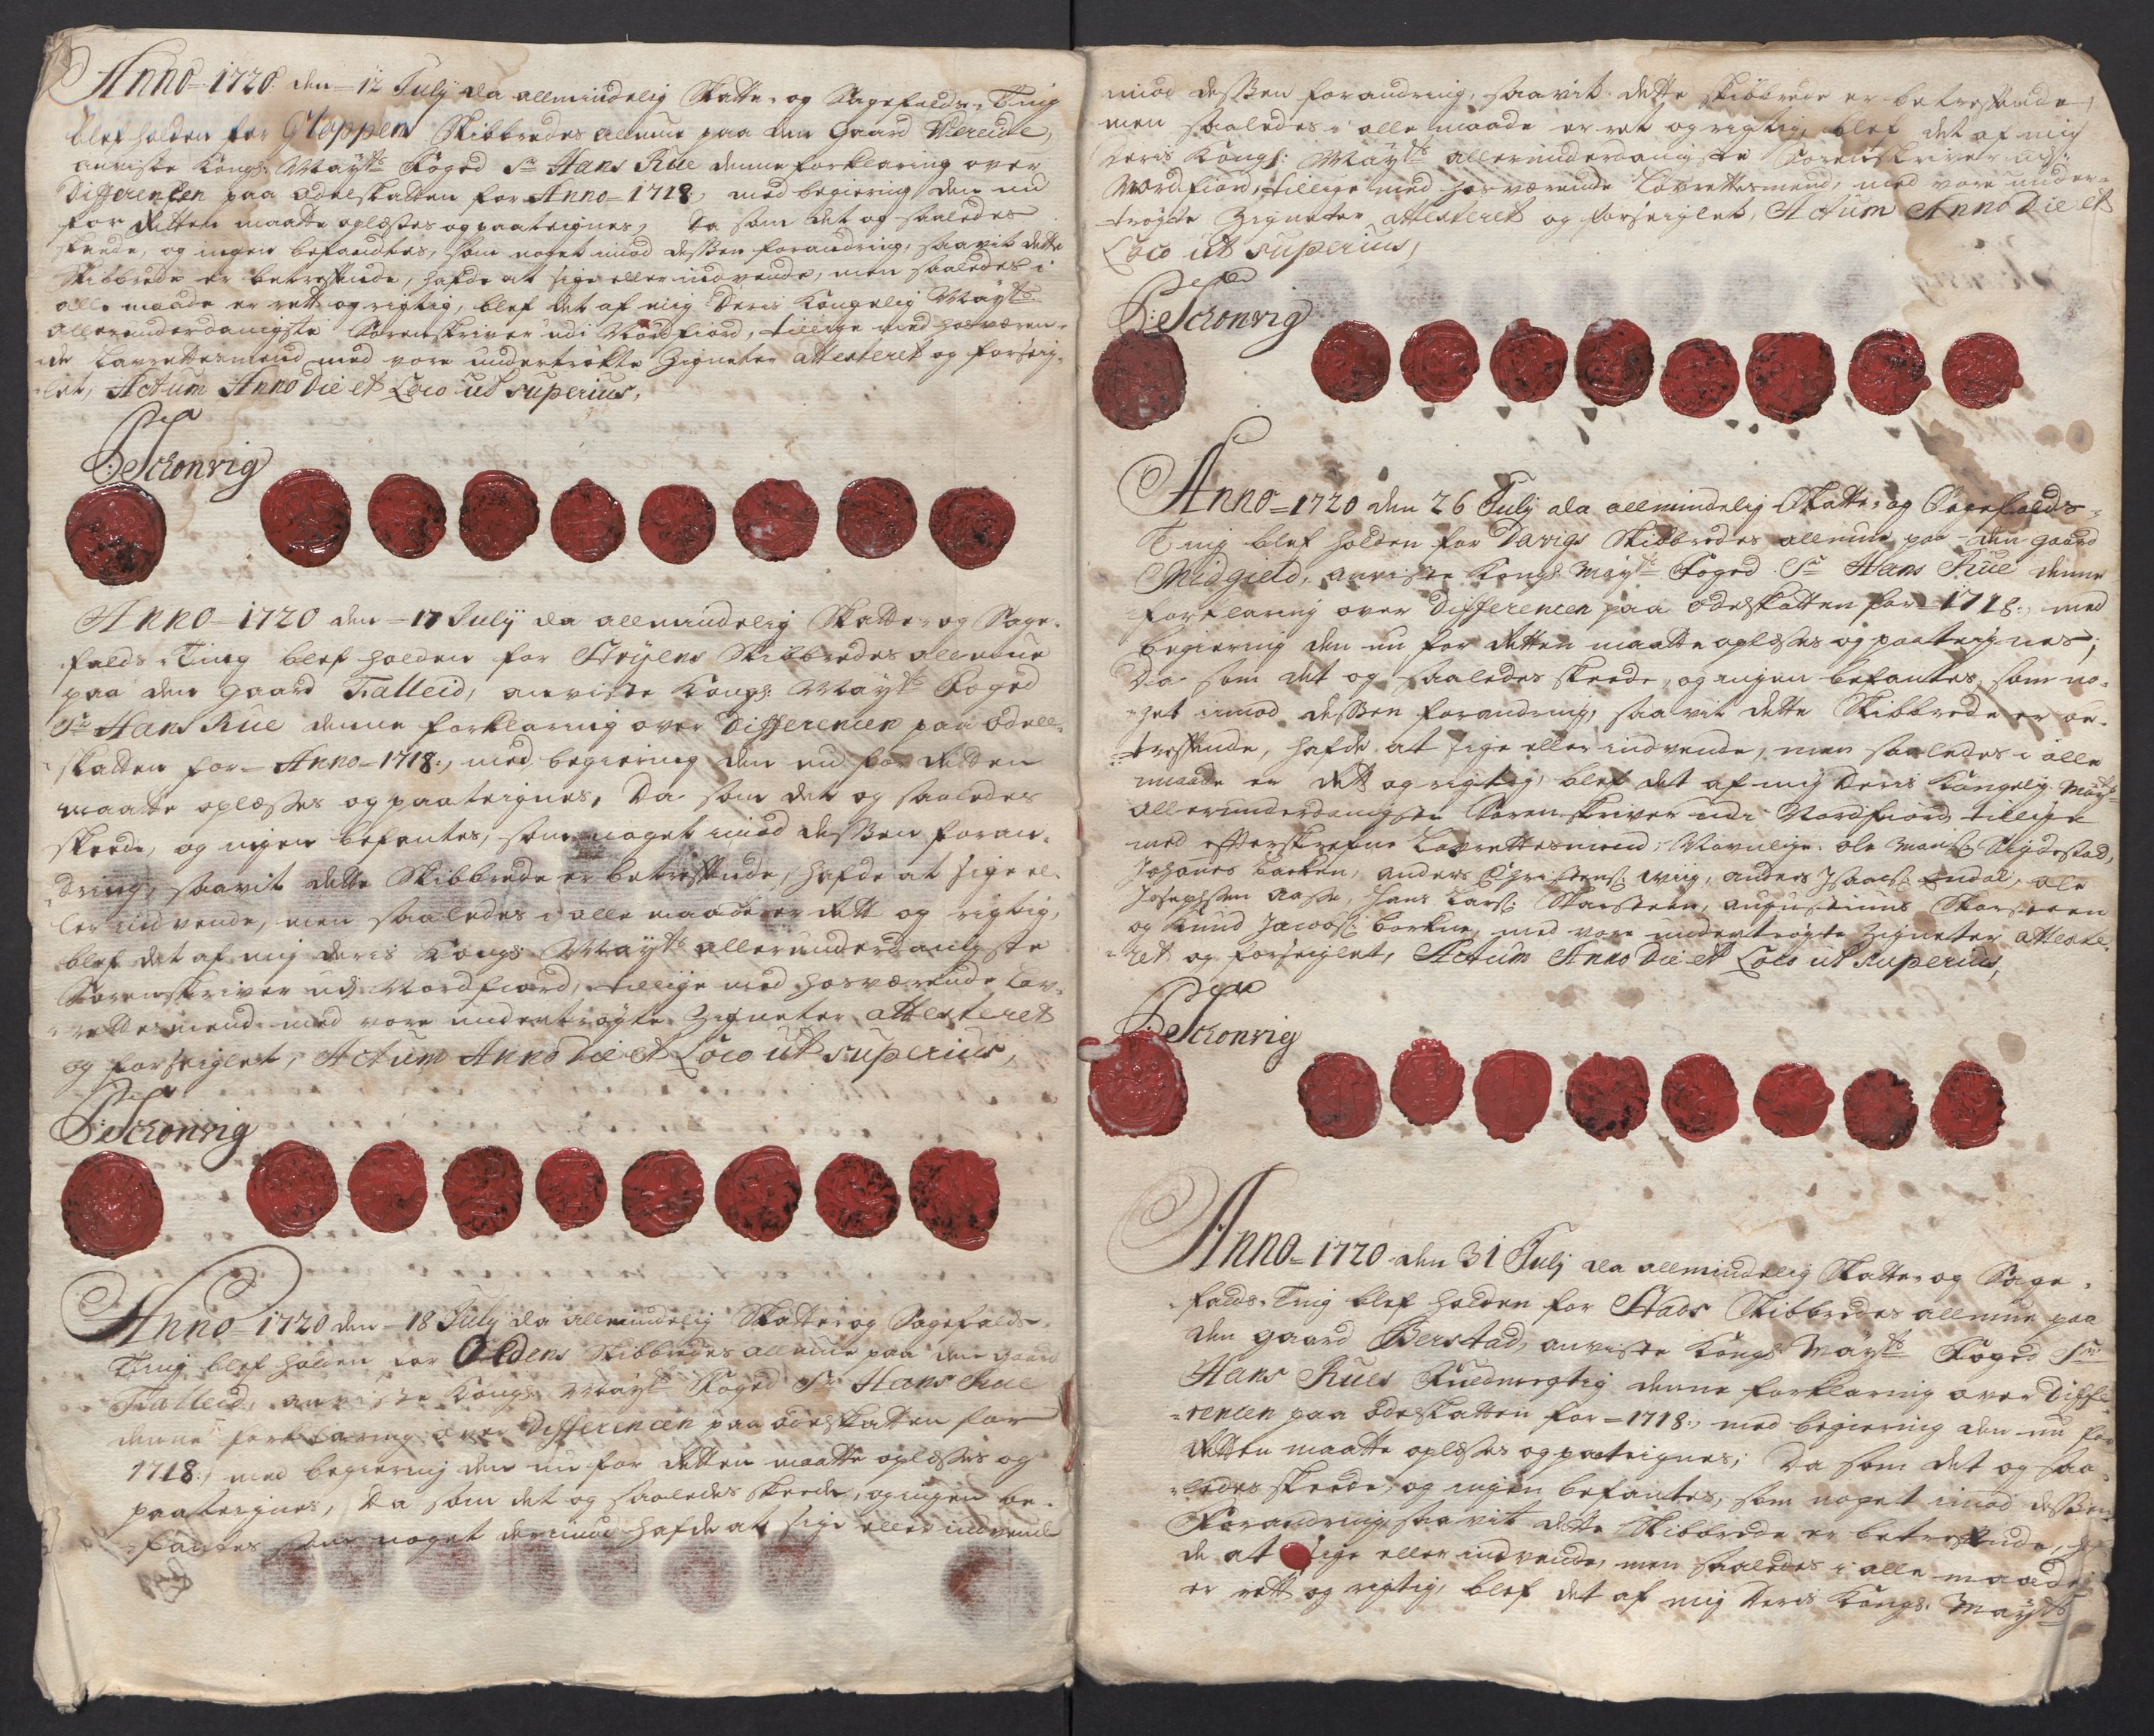 Anno 1720 den 12 July da allmindelig Skatte- og Sagefalds-Ting
blef holden for Gloppen Skibbredes allmue paa den Gaard Vereide,
anviste Kongl: Mayts Foged Sr Hans Rue denne forklaring over
Differencen paa Ødeskatten for Anno 1718, med begiering den nu
for Retten maatte oplæsses og paateignes, Da som det og saaledes
skeede, og ingen befandtes, som noget imod dessen forandring, saavit dette
Skibbrede er betreffende, hafde at sige eller indvende, men saaledes i
alle maade er rett og rigtig, blef det af mig Deris Kongelig Mayts
allerunderdanigste Sorenskriver udi Nordfiord, tillige med hosværen-
de Laurettesmend med vore undertrøkte Zigneter attesteret og forseig-
let, Actum Anno Die et Loco ut superius,
Schonvig
Anno 1720 den 17 July da allmindelig Skatte- og Sage-
falds-Ting blef holden for Strÿens Skibbredes allmue
paa den gaard Talleid, anviste Kongl: Mayts Foged
Sr Hans Rue denne forklaring over Differencen paa Øde-
skatten for Anno 1718, med begiering den nu for Retten
maatte oplæsses og paateignes, Da som det og saaledes
skeede, og ingen befantes, som noget imod dessen foran-
dring, saavit dette Skibbrede er betreffende, hafde at sige el-
ler indvende, men saaledes i alle maade er rett og rigtig,
blef det af mig Deris Kongl: Mayts allerunderdanigste
Sorenskriver udi Nordfiord, tillige med hosværende Lau-
rettesmend med vore undertrøgte Zigneter attesteret
og forseiglet, Actum Anno Die et Loco ut superius,
Schonvig
Anno 1720 den 18 July da allmindelig Skatte- og Sagefalds-
Ting blef holden for Oldens Skibbredes allmue paa den gaard
Talleid, anviste Kongl: Mayts Foged Sr Hans Rue
denne forklaring over Differencen paa Ødeskatten for
1718, med begiering den nu for Retten maatte oplæsses og
paateignes, Da som det og saaledes skeede, og ingen be-
fantes som noget derimod hafde at sige eller indvende
imod dessen forandring, saavit dette Skibbrede er betreffende,
men saaledes i alle maade er ret og rigtig, blef det af mig
Deris Kongl: Mayts allerunderdanigste Sorenskriver udj
Nordfiord, tillige med hosværende Laurettesmend, med vore under-
trøgte Zigneter attesteret og forseiglet, Actum Anno Die et
Loco ut superius,
Schonvig
Anno 1720 den 26 July da allmindelig Skatte- og Sagefalds-
Ting blef holden for Davigs Skibbredes allmue paa den gaard
Midgield, anviste Kongl: Mayts Foged Sr Hans Rue denne
forklaring over Differencen paa Ødeskatten for 1718, med
begiering den nu for Retten maatte oplæsses og paateignes,
Da som det og saaledes skeede, og ingen befantes, som no-
get imod dessen forandring, saavit dette Skibbrede er be-
treffende, hafde at sige eller indvende, men saaledes i alle
maade er rett og rigtig, blef det af mig Deris Kongelig Mayts
allerunderdanigste Sorenskriver udi Nordfiord tillige
med efterskrefne Laurettesmend, Navnlige. Ole
Johanes Backen, Anders Christens: Wiig, Anders Isaacs: Endal, Ole
Josephssen Aase, Hans Lars: Starsteen, Augustinus Starsteen
og Knud Jacobs: Backen, med vore undertrøgte Zigneter atteste-
ret og forseiglet, Actum Anno Die et Loco ut superius,
Schonvig
Anno 1720 den 31 July da allmindelig Skatte- og Sage-
falds-Ting blef holden for Stads Skibbredes allmue paa
den gaard Berstad, anviste Kongl: Mayts Foged Sr
Hans Rues Fuldmegtig denne forklaring over Diffe-
rencen paa Ødeskatten for 1718, med begiering den nu for
Retten maatte oplæsses og paateignes, Da som det og saa-
ledes skeede, og ingen befantes, som noget imod dessen
Forandring, saavit dette Skibbrede er betreffende, haf-
de at sige eller indvende, men saaledes i alle maade
er rett og rigtig, blef det af mig Deris Kongl: Mayts